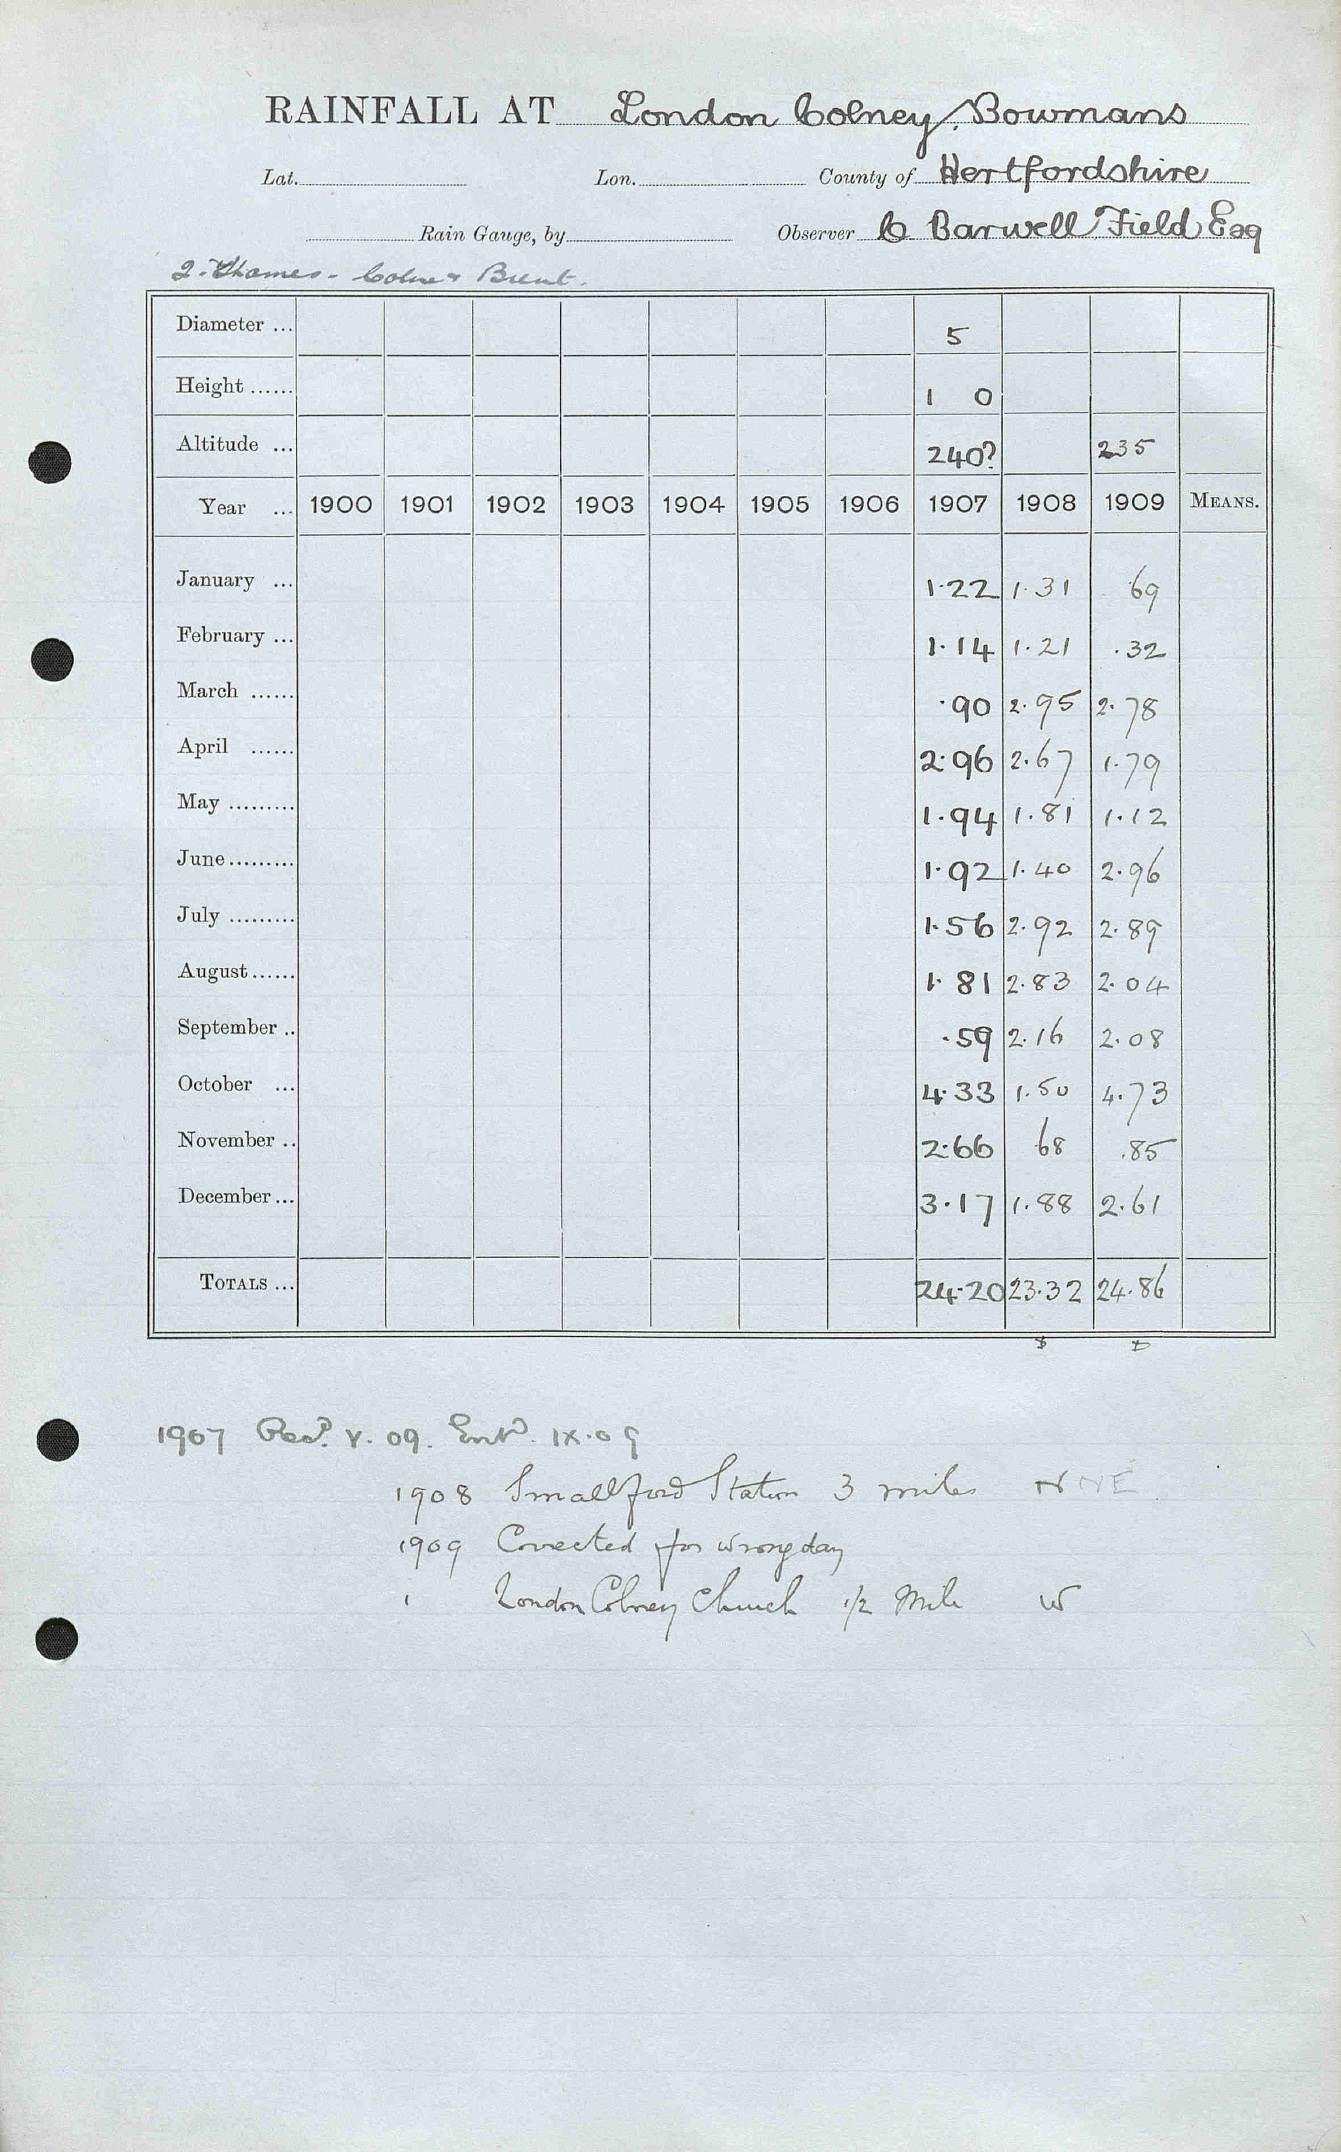 RAINFALL AT London Colney, Bowmans
Lat. Lon. County of Hertfordshire
Rain Gauge, by Observer C Barwell Field Esq
2. Thames - Colne & Brent.
Diameter ... 5
Height ...... 1 0
Altitude ... 240? 235
Year ... 1900 1901 1902 1903 1904 1905 1906 1907 1908 1909 MEANS.
January ... 1.22 1.31 .69
February ... 1.14 1.21 .32
March ...... .90 2.95 2.78
April ...... 2.96 2.67 1.79
May ......... 1.94 1.81 1.12
June......... 1.92 1.40 2.96
July ......... 1.56 2.92 2.89
August...... 1.81 2.83 2.04
September .. .59 2.16 2.08
October ... 4.33 1.50 4.73
November .. 2.66 .68 .85
December... 3.17 1.88 2.61
TOTALS ... 24.20 23.32 24.86
1907 Recd. V. 09. Entd. IX.09
1908 Smallford Station 3 miles NNE
1909 Corrected for wrong day
London Colney Church 1/2 Mile W